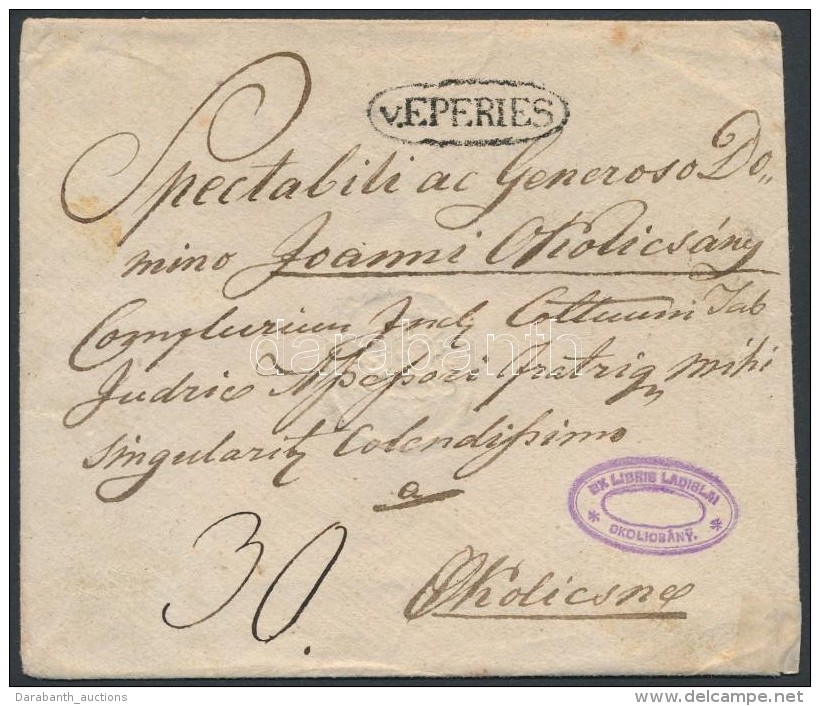 v.EPERIES
Spectabili ac Generoso Do„
mino Joanni Okolicsány
Complurium Incly Cottuum Tab
Judrie Assessori fratriq mihi
singularit Colendissimo
a
EX LIBRIS LADISLAI
OKOLICSÁNY.
30.
Okolicsne
darabanth
Darabanth_auctions
delcampe.net